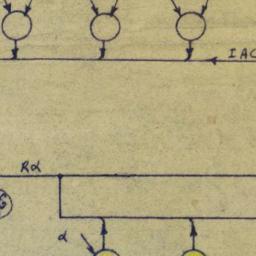 IAC
Rα
G
α